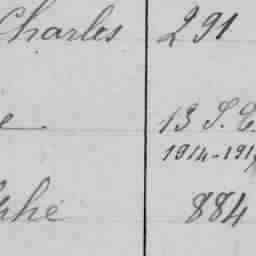 Charles 291
e 13 S. E.
1914-191
phe 884